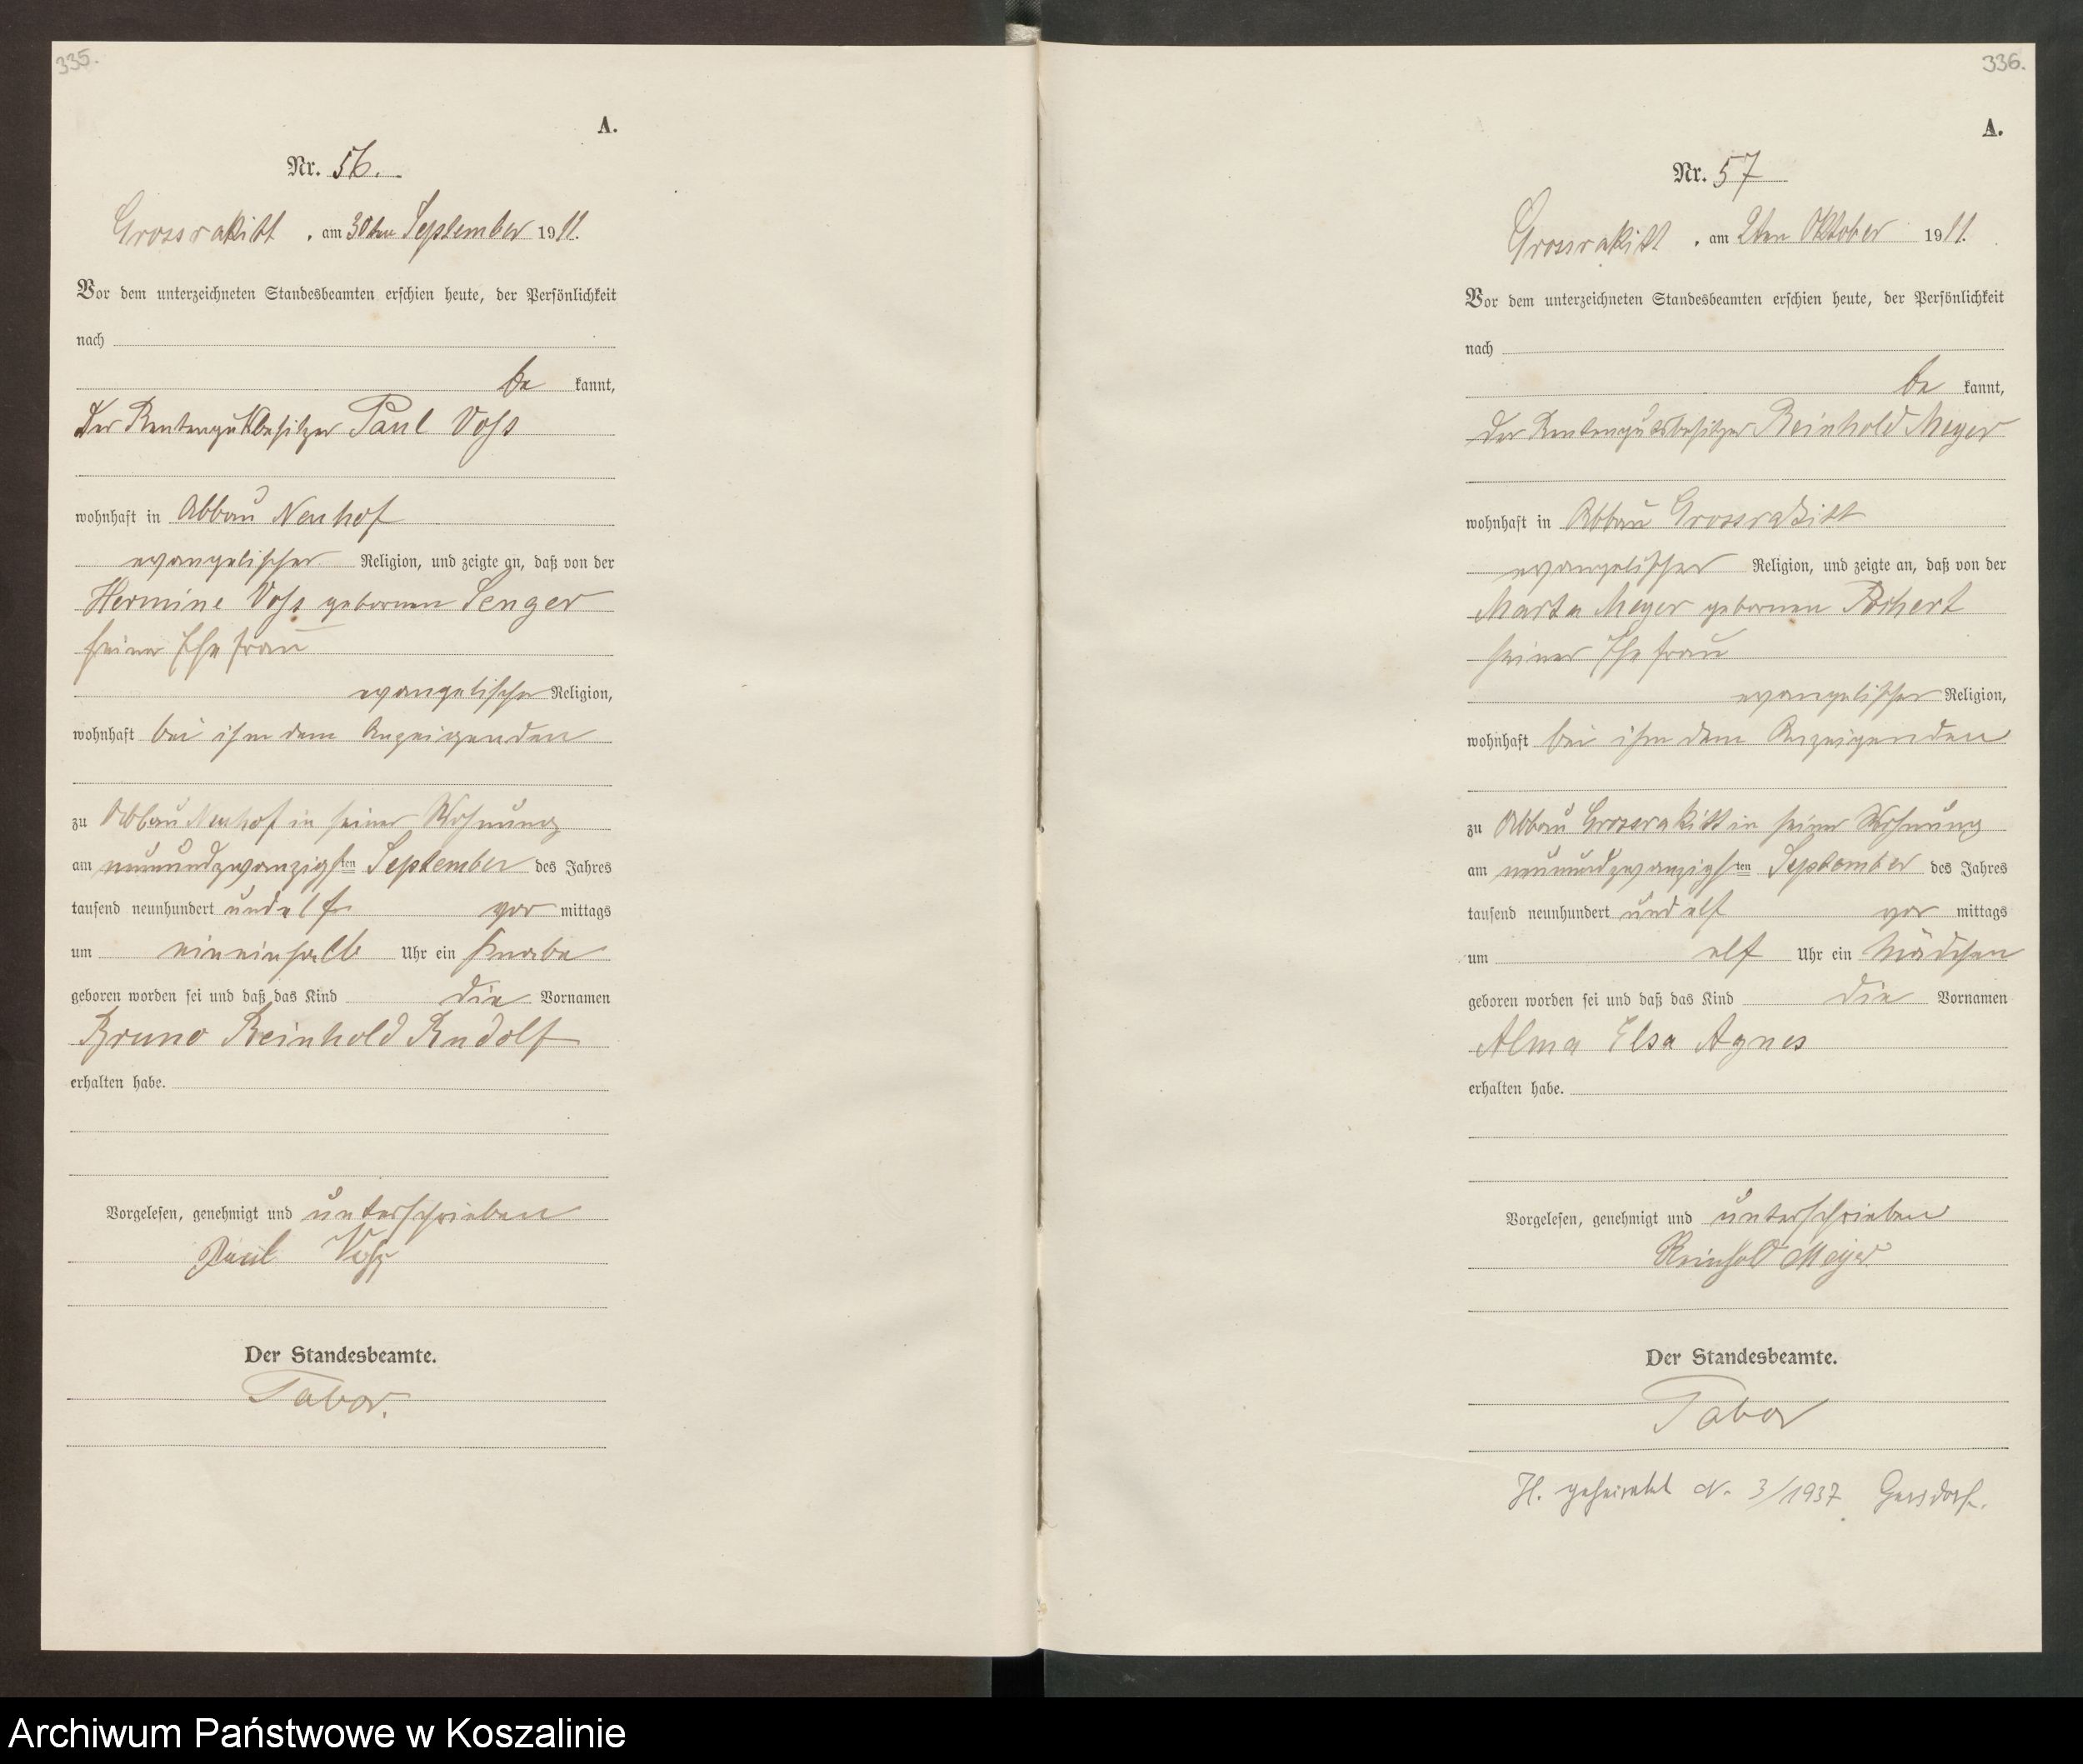 335.
A.
Nr. 56.
Grossrakitt, am 30ten September 1911.
Vor dem unterzeichneten Standesbeamten erschien heute, der Persönlichkeit
nach
be kannt,
der Rentengutsbesitzer Paul Voss
wohnhaft in Abbau Neuhof
evangelischer Religion, und zeigte an, daß von der
Hermine Voss geborenen Senger
seiner Ehefrau
evangelischer Religion,
wohnhaft bei ihm dem Anzeigenden
zu Abbau Neuhof in seiner Wohnung
am neunundzwanzigsten September des Jahres
tausend neunhundert und elf vor mittags
um eineinhalb Uhr ein Knabe
geboren worden sei und daß das Kind die Vornamen
Bruno Reinhold Rudolf
erhalten habe.
Vorgelesen, genehmigt und unterschrieben
Paul Voß
Der Standesbeamte.
Tabor.
336.
A.
Nr. 57
Grossrakitt, am 2ten Oktober 1911.
Vor dem unterzeichneten Standesbeamten erschien heute, der Persönlichkeit
nach
be kannt,
der Rentengutsbesitzer Reinhold Meyer
wohnhaft in Abbau Grossrakitt
evangelischer Religion, und zeigte an, daß von der
Marta Meyer geborenen
seiner Ehefrau
evangelischer Religion,
wohnhaft bei ihm dem Anzeigenden
zu Abbau Grossrakitt in seiner Wohnung
am neunundzwanzigsten September des Jahres
tausend neunhundert und elf vor mittags
um elf Uhr ein Mädchen
geboren worden sei und daß das Kind die Vornamen
Alma Elsa Agnes
erhalten habe.
Vorgelesen, genehmigt und unterschrieben
Reinhold Meyer
Der Standesbeamte.
Tabor
geheiratet N. 3/1937
Archiwum Państwowe w Koszalinie